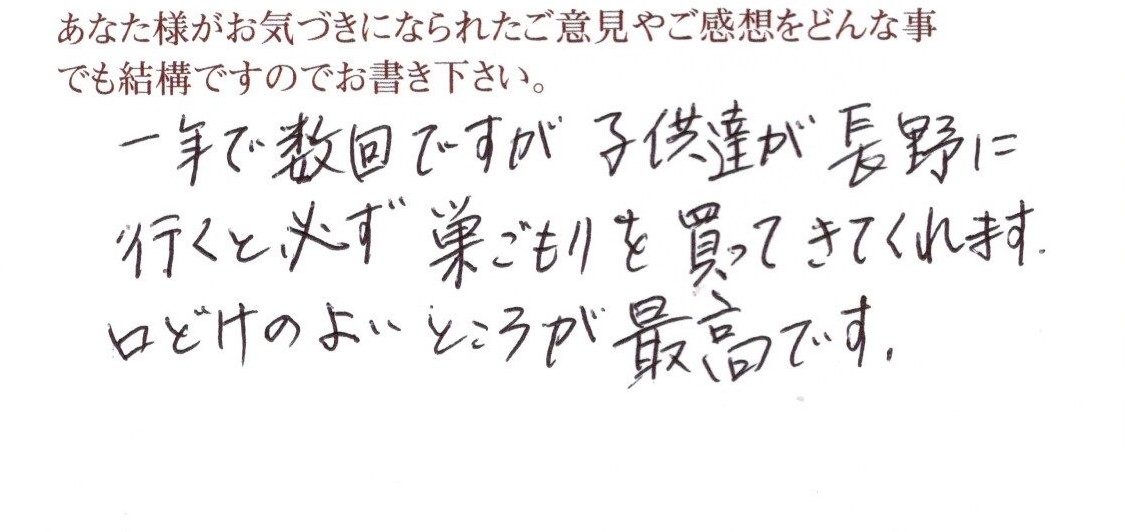 あなた様がお気づきになられたご意見やご感想をどんな事
でも結構ですのでお書き下さい。
一年で数回ですが 子供達が 長野に
行くと必ず 巣ごもりを 買ってきてくれます.
口どけのよいところが 最高です.